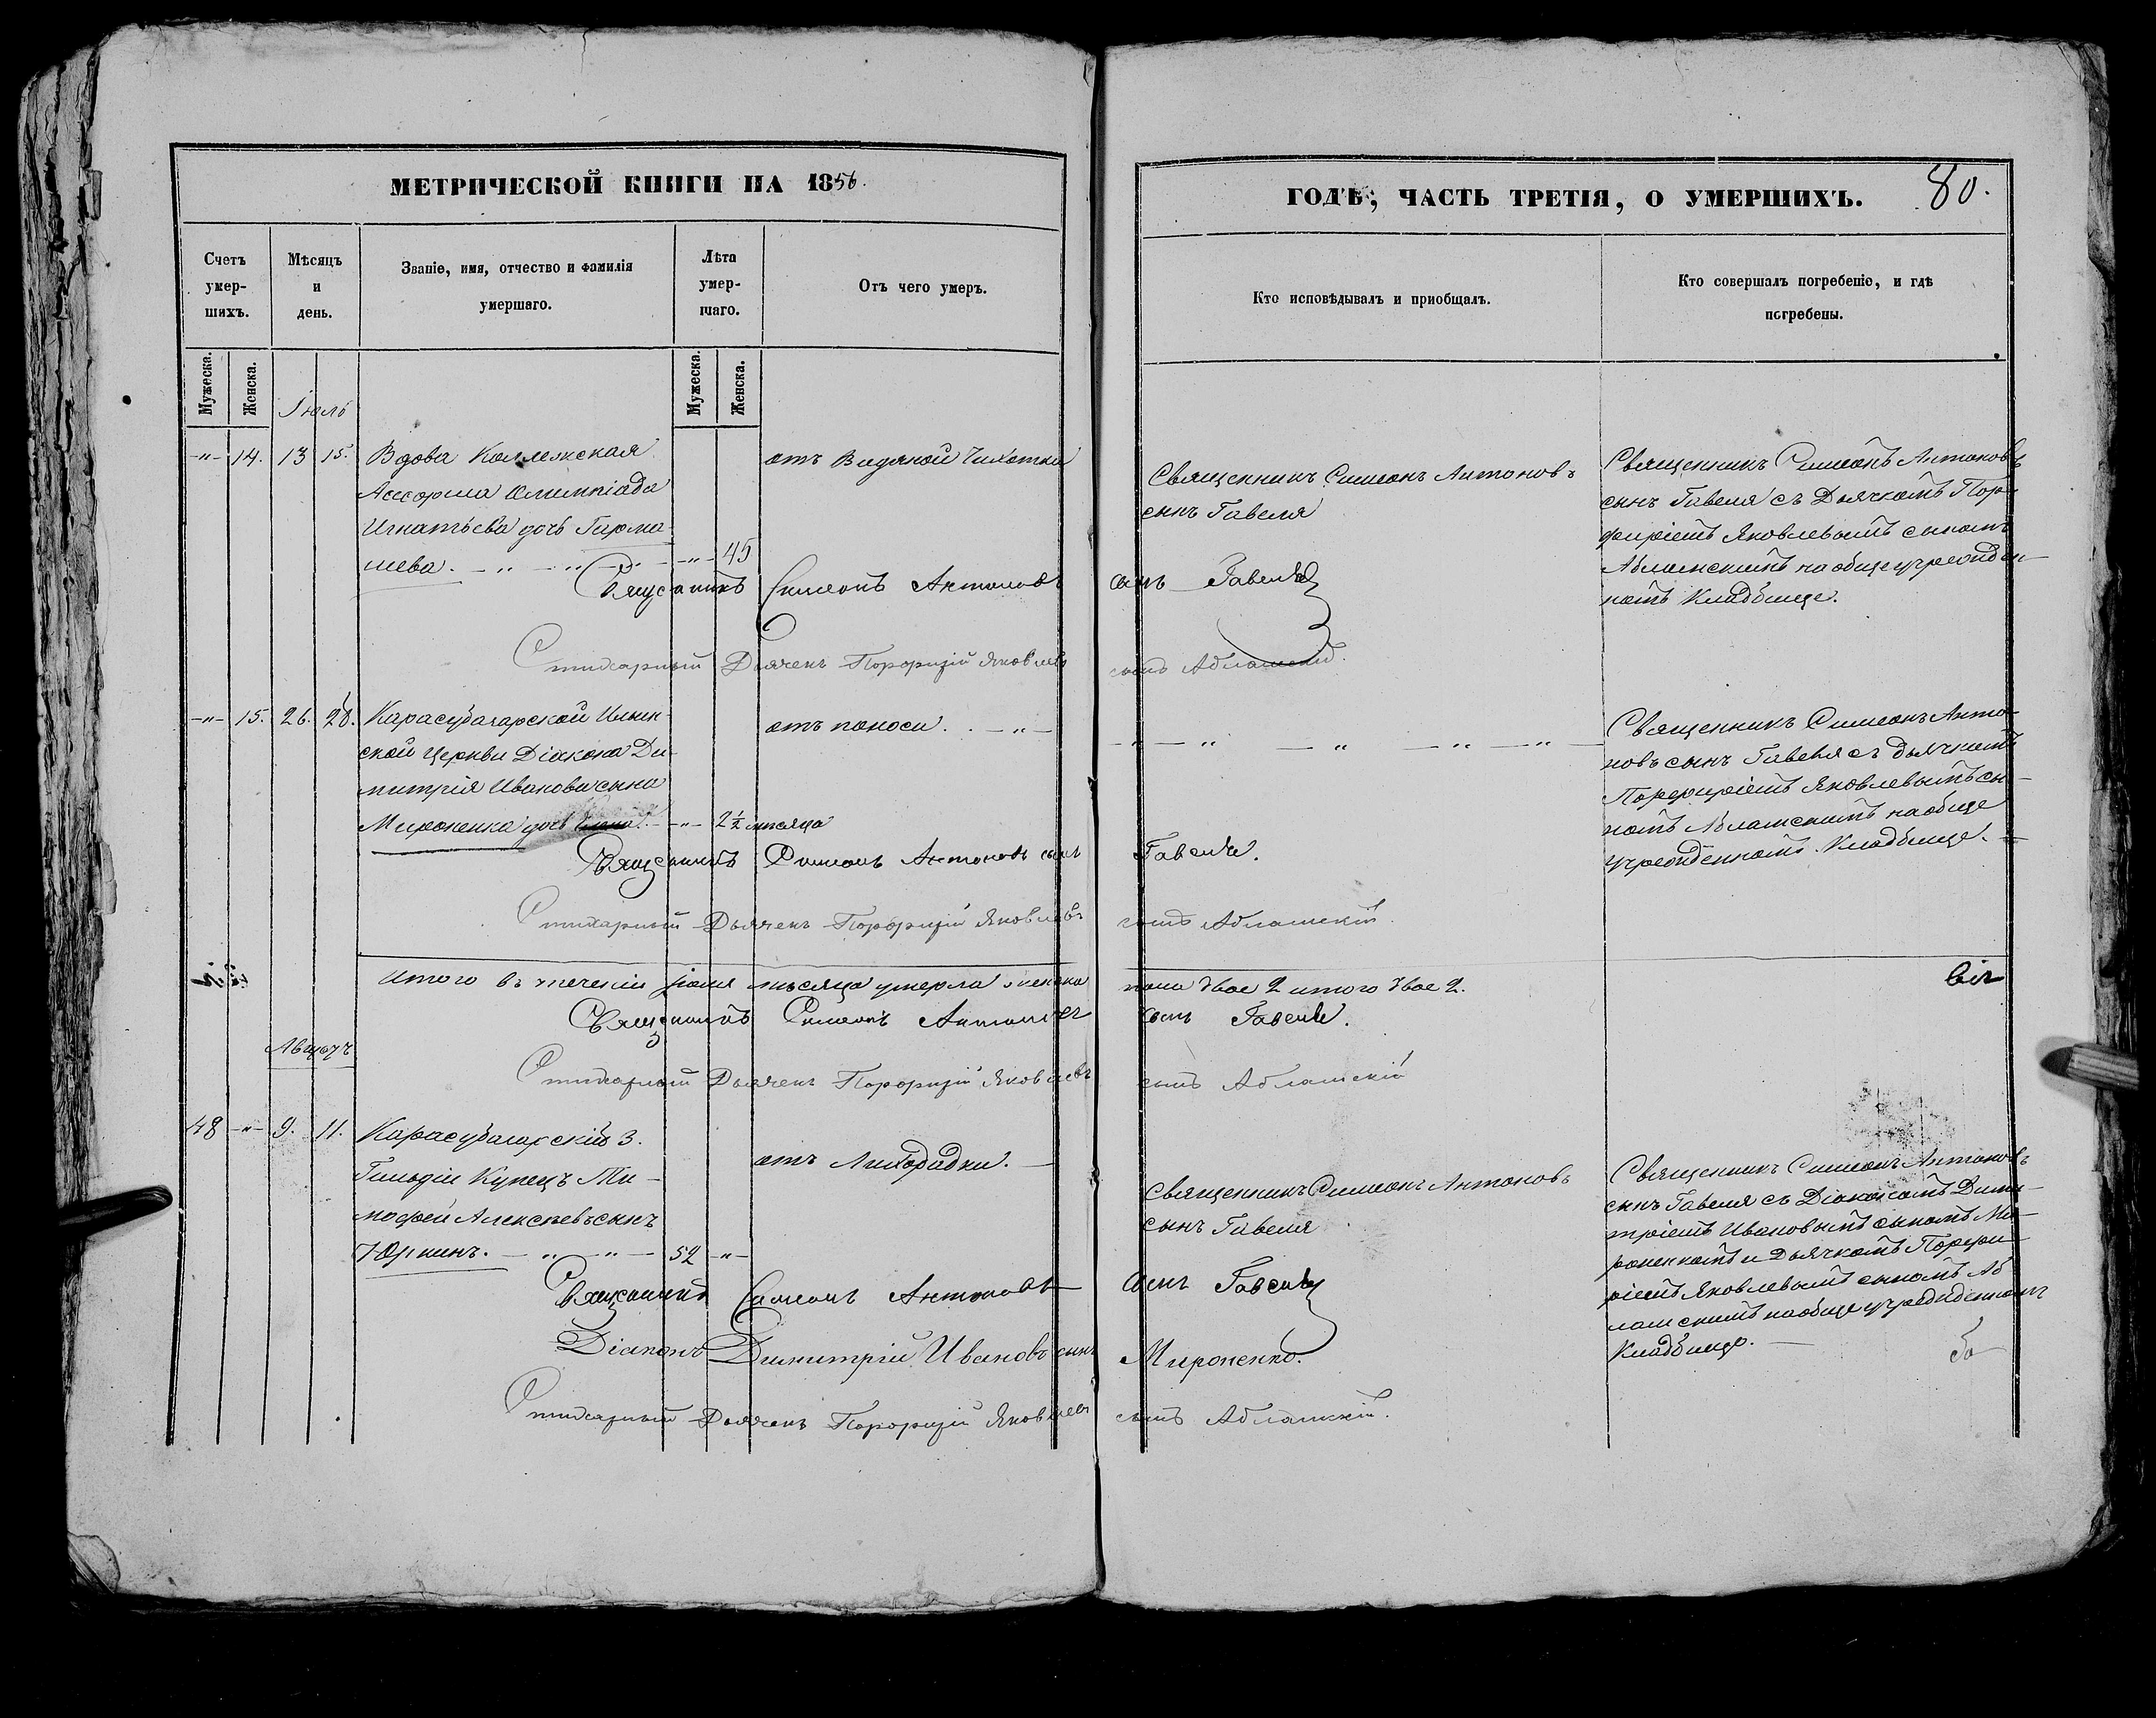 МЕТРИЧЕСКОЙ КНИГИ НА 1856.
Счетъ умер-шихъ.
Мѣсяцъ и день.
Званіе, имя, отчество и фамилія умершаго.
Лѣта умер-шаго.
Отъ чего умеръ.
Мужеска.
Женска.
Мужеска.
Женска.
Іюль
-"- 14. 13 15. Вдова Коллежская
Асесорша Олимпіада
Игнатьева дочь Гарма-
шева. - " - " - -"- 45
отъ Водяной Чихотки
Священникъ Симеонъ Антоновъ
Стихарный Дьячекъ Порфирій Яковлевъ
-"- 15. 26. 28. Карасубазарской Ильин-
ской Церкви Діакона Ди-
митрія Иванова сына
Мироненка дочь -"- 2½ мѣсяца
отъ поноса. - " -
Священникъ Симеонъ Антоновъ сынъ
Стихарный Дьячекъ Порфирій Яковлевъ
Итого въ теченіи Іюля мѣсяца умерло женска
Священникъ Симеонъ Антоновъ
Августъ
Стихарный Дьячекъ Порфирій Яковлевъ
48 -"- 9. 11. Карасубазарскій 3.
Гильдіи Купецъ Ти-
мофей Алексѣевъ сынъ
Юркинъ. - " - " - 52 -"-
отъ Лихорадки. -
Священникъ Симеонъ Антоновъ
Діаконъ Димитрій Ивановъ сынъ
Стихарный Дьячекъ Порфирій Яковлевъ
ГОДЪ, ЧАСТЬ ТРЕТІЯ, О УМЕРШИХЪ. 80.
Кто исповѣдывалъ и пріобщалъ.
Кто совершалъ погребеніе, и гдѣ погребены.
Священникъ Симеонъ Антоновъ
сынъ Гавеля
сынъ Гавеля
сынъ Абламскій.
Священникъ Симеонъ Антоновъ
сынъ Гавеля съ Дьячкомъ Пор-
фиріемъ Яковлевымъ сыномъ
Абламскимъ на общеучрежден-
номъ Кладбище.
- " - " - " - " - " -
Гавеля.
сынъ Абламскій.
Священникъ Симеонъ Анто-
новъ сынъ Гавеля съ дьячкомъ
Порфиріемъ Яковлевымъ сы-
номъ Абламскимъ на обще
учрежденномъ Кладбище. -
двое 2 итого двое 2.
сынъ Гавеля.
сынъ Абламскій
Священникъ Симеонъ Антоновъ
сынъ Гавеля
сынъ Гавеля
Мироненко.
сынъ Абламскій.
Священникъ Симеонъ Антоновъ
сынъ Гавеля съ Діакономъ Дими-
тріемъ Ивановымъ сыномъ Ми-
роненкомъ и Дьячкомъ Порфи-
ріемъ Яковлевымъ сыномъ Аб
ламскимъ на обще учрежденномъ
Кладбище. -